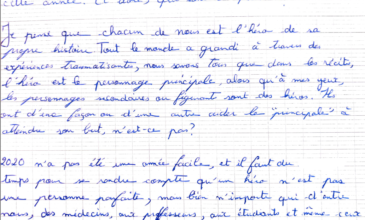 cette année. Et donc, qui
Je pense que chacun de nous est l'héro de sa
propre histoire Tout le monde a grandi à travers des
expériences traumatisantes, nous savons tous que dans les récits,
l'héro est le personnage principale, alors qu'à mes yeux,
les personnages secondaires ou figurant sont des héros. Ils
ont d'une façon ou d'une autre aider le "principale" à
attendre son but, n'est-ce pas?
2020 n'a pas été une année facile, et il faut du
temps pour se rendre compte qu'un héro n'est pas
une personne parfaite, mais bien n'importe qui d'entre
nous, des médecins, aux professeurs, aux étudiants et même ceux